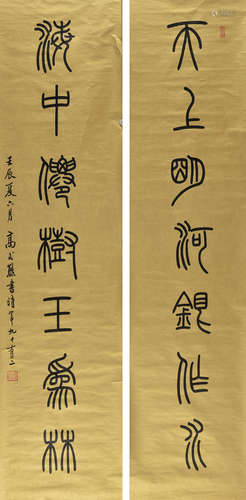 天上朙河銀作水
海中僊樹玉為林
壬辰夏六月高式熊書時年九十有二